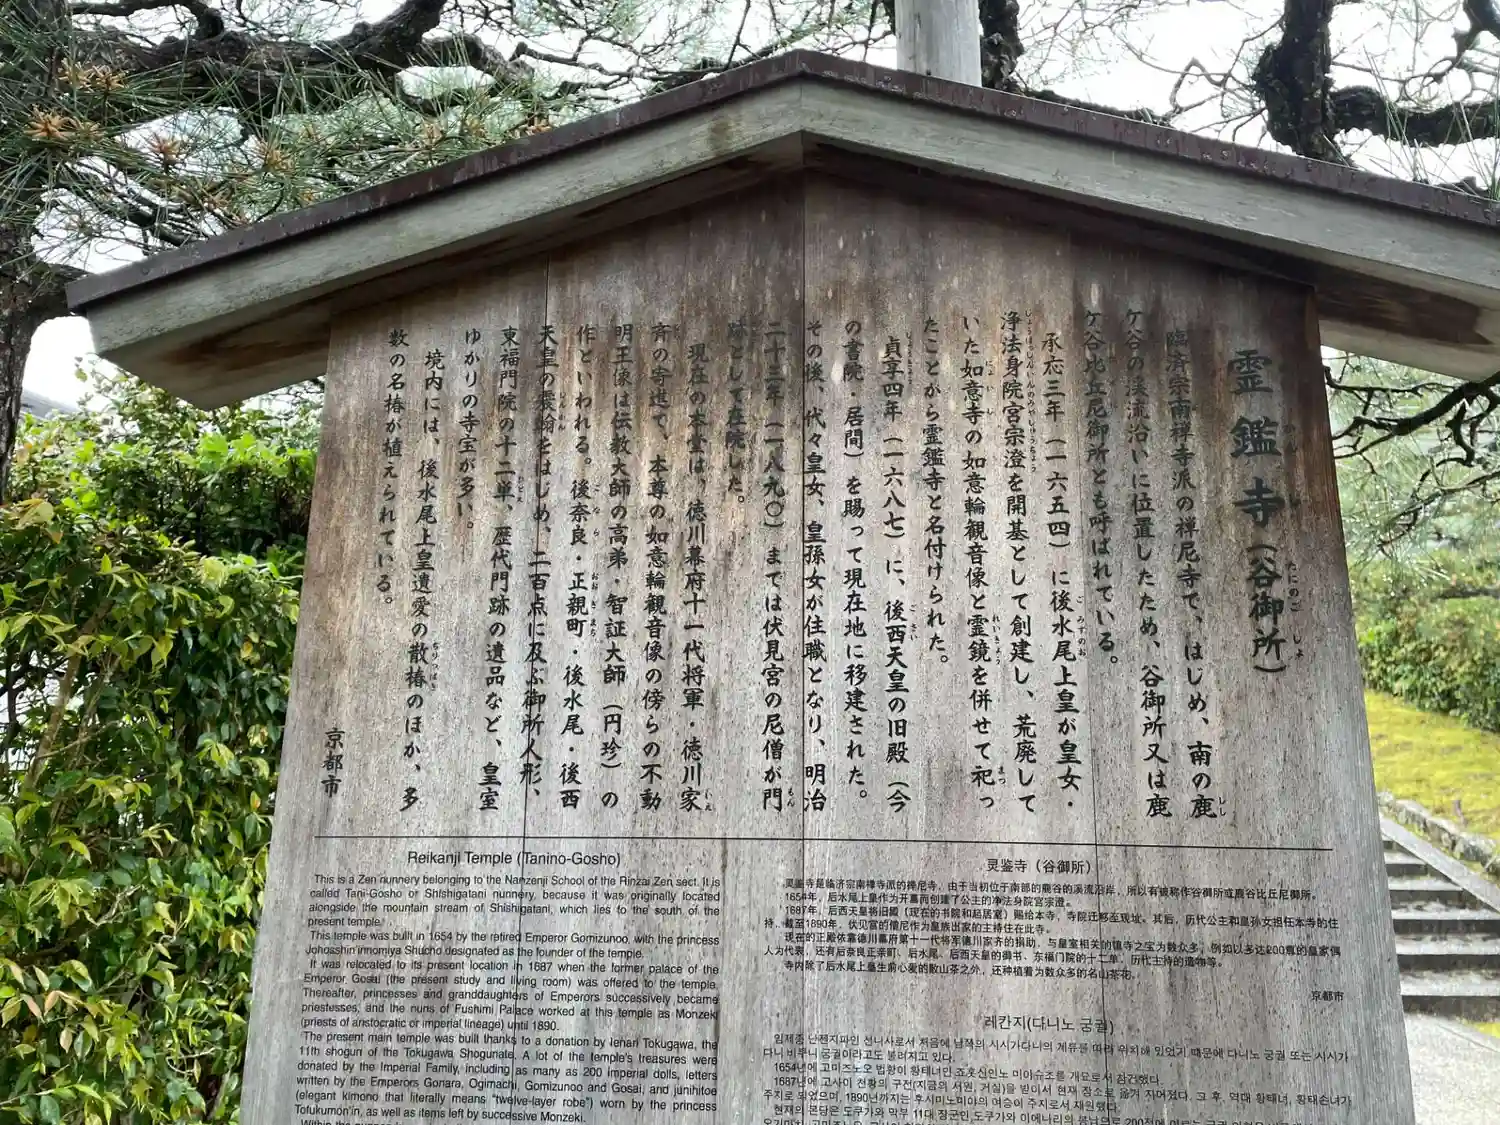 霊鑑寺（谷御所）
臨済宗南禅寺派の禅尼寺で、はじめ、南の鹿
ケ谷の渓流沿いに位置したため、谷御所又は鹿
ケ谷比丘尼御所とも呼ばれている。
承応三年（一六五四）に後水尾上皇が皇女・
浄法身院宮宗澄を開基として創建し、荒廃して
いた如意寺の如意輪観音像と霊鏡を併せて祀っ
たことから霊鑑寺と名付けられた。
貞享四年（一六八七）に、後西天皇の旧殿（今
の書院・居間）を賜って現在地に移建された。
その後、代々皇女、皇孫女が住職となり、明治
二十三年（一八九〇）までは伏見宮の尼僧が門
跡として在院した。
現在の本堂は、徳川幕府十一代将軍・徳川家
斉の寄進で、本尊の如意輪観音像の傍らの不動
明王像は伝教大師の高弟・智証大師（円珍）の
作といわれる。後奈良・正親町・後水尾・後西
天皇の宸翰をはじめ、二百点に及ぶ御所人形、
東福門院の十二単、歴代門跡の遺品など、皇室
ゆかりの寺宝が多い。
境内には、後水尾上皇遺愛の散椿のほか、多
数の名椿が植えられている。
京都市
Reikanji Temple (Tanino-Gosho)
This is a Zen nunnery belonging to the Nanzenji School of the Rinzai Zen sect. It is
called Tani-Gosho or Shishigatani nunnery, because it was originally located
alongside the mountain stream of Shishigatani, which lies to the south of the
present temple.
This temple was built in 1654 by the retired Emperor Gomizunoo, with the princess
Johosshin'innomiya Shucho designated as the founder of the temple.
It was relocated to its present location in 1687 when the former palace of the
Emperor Gosai (the present study and living room) was offered to the temple.
Thereafter, princesses and granddaughters of Emperors successively became
priestesses, and the nuns of Fushimi Palace worked at this temple as Monzeki
(priests of aristocratic or imperial lineage) until 1890.
The present main temple was built thanks to a donation by Ienari Tokugawa, the
11th shogun of the Tokugawa Shogunate. A lot of the temple's treasures were
donated by the Imperial Family, including as many as 200 imperial dolls, letters
written by the Emperors Gonara, Ogimachi, Gomizunoo and Gosai, and junihitoe
(elegant kimono that literally means "twelve-layer robe") worn by the princess
Tofukumon'in, as well as items left by successive Monzeki.
灵鉴寺（谷御所）
灵鉴寺是临济宗南禅寺派的禅尼寺，由于当初位于南部的鹿谷的溪流沿岸，所以有被称作谷御所或鹿谷比丘尼御所。
1654年，后水尾上皇作为开基而创建了公主的净法身院宫宗澄。
1687年，后西天皇将旧殿（现在的书院和起居室）赐给本寺，寺院迁移至现址。其后，历代公主和皇孙女担任本寺的住
持，截至1890年，伏见宫的僧尼作为皇族出家的主持住在此寺。
现在的正殿依靠德川幕府第十一代将军德川家齐的捐助，与皇室相关的镇寺之宝为数众多，例如以多达200尊的皇家偶
人为代表，还有后奈良正亲町、后水尾、后西天皇的御书、东福门院的十二单，历代主持的遗物等。
寺内除了后水尾上皇生前心爱的散山茶之外，还种植着为数众多的名山茶花。
京都市
레칸지(다니노 궁궐)
임제종 난젠지파인 선니사로서 처음에 남쪽의 시시가다니의 계류를 따라 위치해 있었기 때문에 다니노 궁궐 또는 시시가
다니 비구니 궁궐이라고도 불려지고 있다.
1654년에 고미즈노오 법황이 황태녀인 죠홋신인노 미야슈쵸를 개요로서 창건했다.